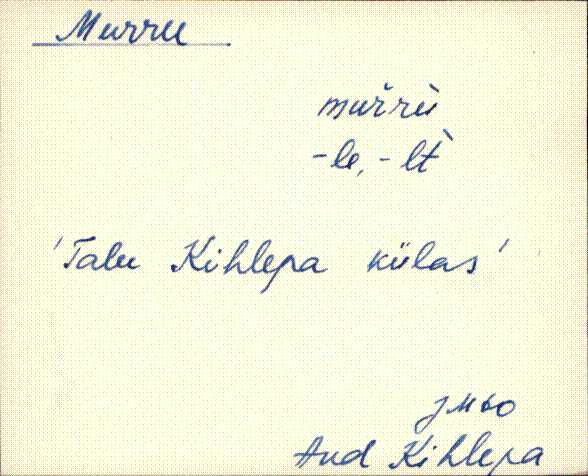 Murru
mur̆rù
-le, -lt̀
'Talu Kihlepa külas'
JM60
Aud Kihlepa